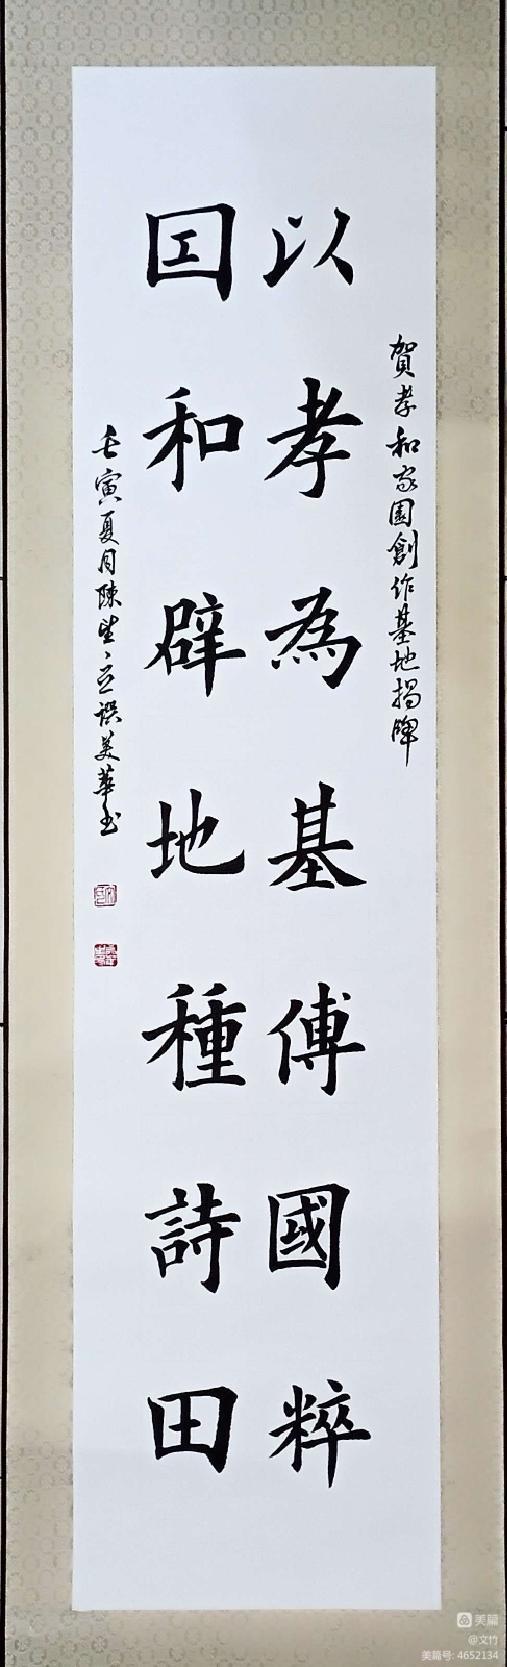 賀孝和家園創作基地揭牌
以孝為基傅國粹
囙和辟地種詩田
壬寅夏月陳譔美華书
美篇
@文竹
美篇号: 4652134